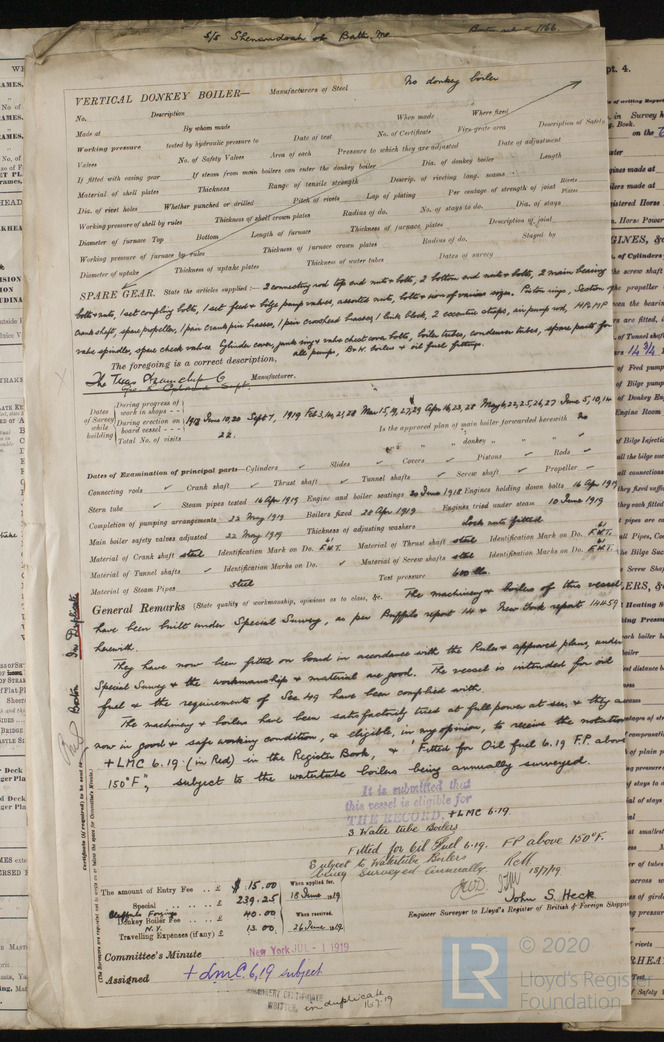 S/S Shenandoah of Balto, Md.
1166.
No donkey boiler
VERTICAL DONKEY BOILER— Manufacturers of Steel
No. Description
Made at By whom made When made Where fixed
Working pressure tested by hydraulic pressure to Date of test No. of Certificate Fire-grate area Description of Safety
Valves No. of Safety Valves Area of each Pressure to which they are adjusted Date of adjustment
If fitted with easing gear If steam from main boilers can enter the donkey boiler Dia. of donkey boiler Length
Material of shell plates Thickness Range of tensile strength Descrip. of riveting long. seams
Dia. of rivet holes Whether punched or drilled Pitch of rivets Lap of plating Per centage of strength of joint Rivets Plates
Working pressure of shell by rules Thickness of shell crown plates Radius of do. No. of stays to do. Dia. of stays
Diameter of furnace Top Bottom Length of furnace Thickness of furnace plates Description of joint
Working pressure of furnace by rules Thickness of furnace crown plates Radius of do. Stayed by
Diameter of uptake Thickness of uptake plates Thickness of water tubes Dates of survey
SPARE GEAR. State the articles supplied:— 2 connecting rod top end nuts & bolts, 2 bottom end nuts & bolts, 2 main bearing
bolts & nuts, 1 set coupling bolts, 1 set feed & bilge pump valves, assorted nuts, bolts & iron of various sizes. Piston rings, Section of
crank shaft, spare propeller, 1 pair crank pin brasses, 1 pair crosshead brasses, 1 link block, 2 eccentric straps, air pump rod, HP & MP
valve spindles, spare check valves cylinder cover, junk ring & valve chest cover bolts, boiler tubes, condenser tubes, spare parts for
all pumps, B&W. boilers & oil fuel fittings.
The foregoing is a correct description,
The Texas Steamship Co Manufacturer.
Dates of Survey while building
During progress of work in shops - -
During erection on board vessel - - -
Total No. of visits
1918 June 10, 20 Sept 7, 1919 Feb 3, 14, 21, 28 Mar 15, 19, 27, 29 Apr 16, 23, 28 May 6, 22, 25, 26, 27 June 5, 10, 14
22.
Is the approved plan of main boiler forwarded herewith no
" " " donkey " "
Dates of Examination of principal parts—Cylinders Slides Covers Pistons Rods
Connecting rods Crank shaft Thrust shaft Tunnel shafts Screw shaft Propeller
Stern tube Steam pipes tested 16 Apr 1919 Engine and boiler seatings 20 June 1918 Engines holding down bolts 16 Apr 1919
Completion of pumping arrangements 22 May 1919 Boilers fixed 28 Apr. 1919 Engines tried under steam 10 June 1919
Main boiler safety valves adjusted 22 May 1919 Thickness of adjusting washers Lock nuts fitted
Material of Crank shaft steel Identification Mark on Do. F.W.T. Material of Thrust shaft steel Identification Mark on Do. F.W.T.
Material of Tunnel shafts Identification Marks on Do. Material of Screw shafts steel Identification Marks on Do. F.W.T.
Material of Steam Pipes steel Test pressure 600 lbs.
General Remarks (State quality of workmanship, opinions as to class, &c. The machinery & boilers of this vessel
have been built under Special Survey, as per Buffalo report 14 & New York report 14459
herewith.
They have now been fitted on board in accordance with the Rules & approved plans, under
Special Survey & the workmanship & material are good. The vessel is intended for oil
fuel & the requirements of Sec. 49 have been complied with.
The machinery & boilers have been satisfactorily tried at full power at sea, & they are
now in good & safe working condition, & eligible, in my opinion, to receive the notation
+ LMC 6.19 (in Red) in the Register Book, & "Fitted for Oil fuel 6.19 F.P. above
150°F", subject to the watertube boilers being annually surveyed.
It is submitted that
this vessel is eligible for
THE RECORD. + LMC 6.19.
3 Water tube Boilers
Fitted for Oil Fuel 6.19. FP above 150°F.
Subject to Watertube Boilers
being Surveyed Annually.
18/7/19
The amount of Entry Fee . . £ $ 15.00
Special . . £ 239.25
Buffalo Forgings
Donkey Boiler Fee . . £ 40.00
N.Y.
Travelling Expenses (if any) £ 13.00
When applied for, 18 June 1919
When received, 26 June 1919
John S. Heck
Engineer Surveyor to Lloyd's Register of British & Foreign Shipping
Committee's Minute New York JUL - 1 1919
Assigned + L.M.C. 6,19 subject
in duplicate
16.7.19
Boston In Duplicate
© 2020
LR
Lloyd's Register
Foundation